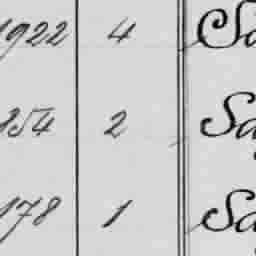 1922 4 Sa
154 2 Sa
178 1 Sa